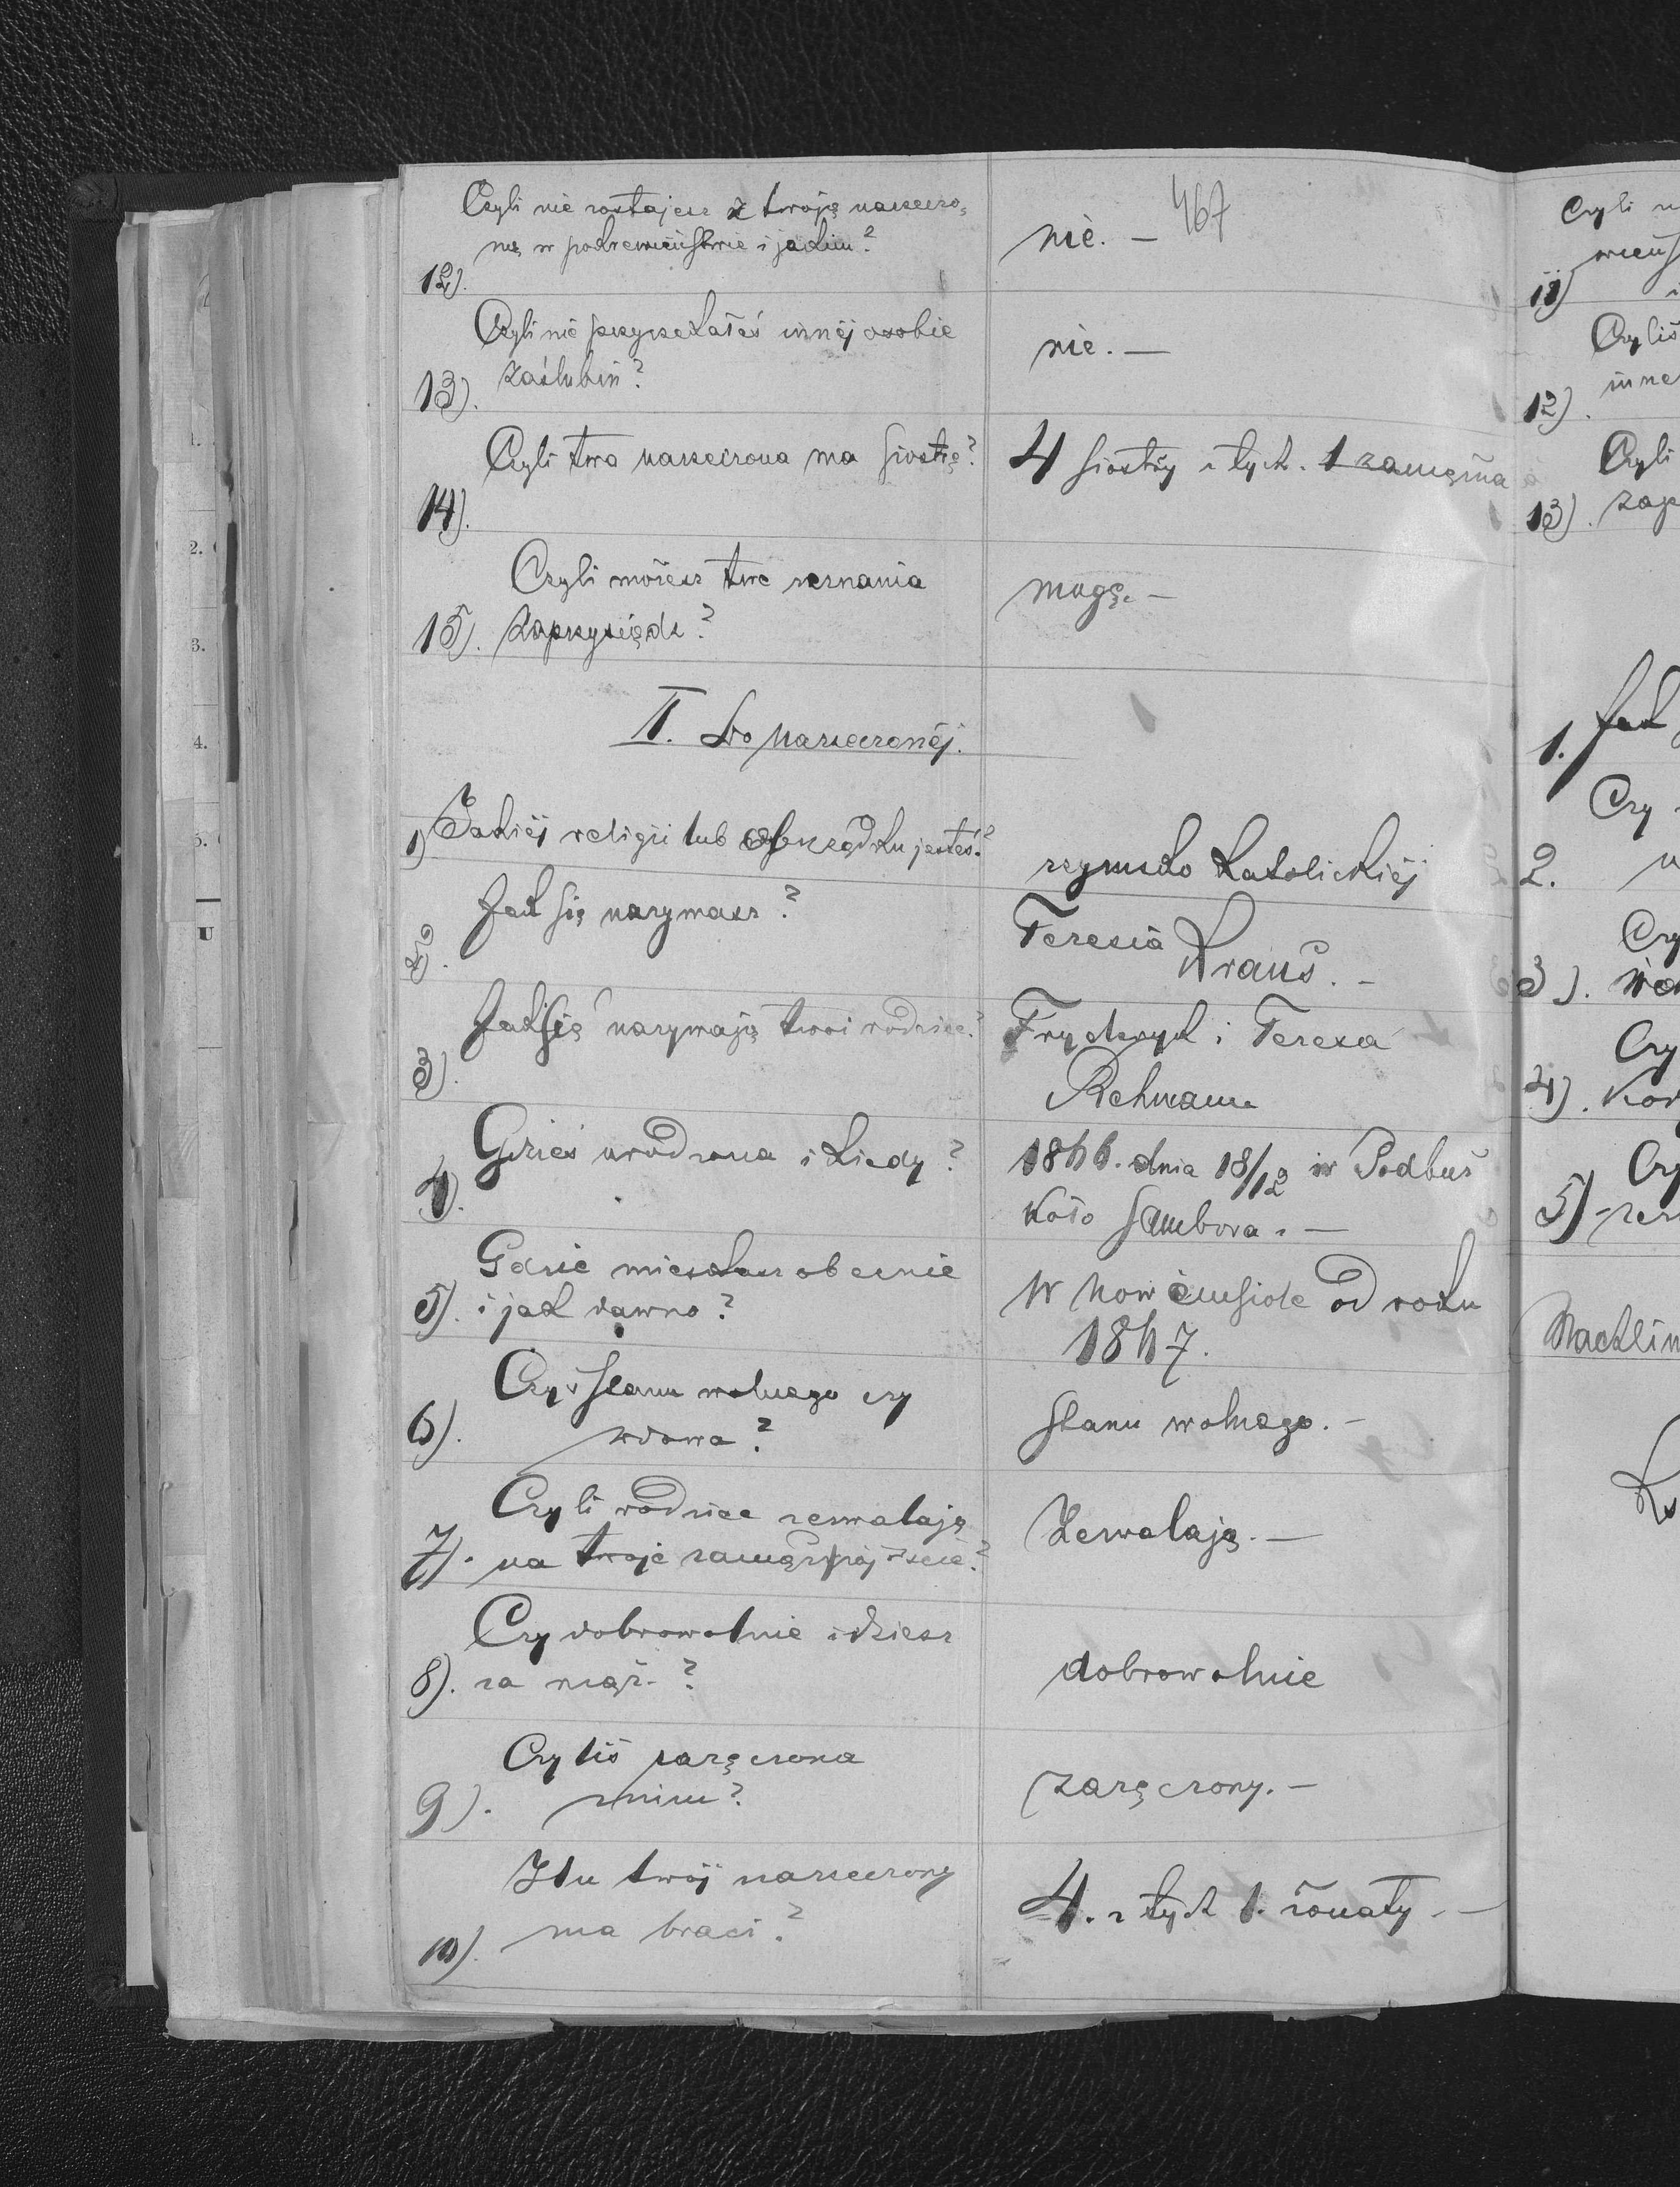 467
Czyli nie zostajesz z twoją narzeczo-
ną w podrewieństwie i jakim?
12). nie. —
Czyli nie przyrzekałeś innéj osobie
13). zaślubin? nie. —
Czyli twa narzeczona ma siostrę?
14). 4 siostry z tych. 1 zamężna
Czyli możesz twe zeznania
15). zaprzysiądz? mogę. —
II. Do narzeczonéj.
1) Jakiéj religii lub obrządku jesteś? rzymsko katolickiéj
2). Jak się nazywasz? Teresia
Kraus. —
3). Jak się nazywają twoi rodzice? Frydryk i Teresa
Rehmann
4). Gdzieś urodzona i kiedy? 1866. dnia 18/12 w Podbuś
koło Sambora. —
Gdzie mieszkasz obecnie
5). i jak dawno? W Nowémsiole od roku
1867.
Czyś stanu wolnego czy
6). wdowa? Stanu wolnego. —
Czyli rodzice zezwalają
7). na twoje zamężpójście? Zezwalają. —
Czy dobrowolnie idziesz
8). za mąż? dobrowolnie
Czyliś zaręczona
9). z nim? zaręczony. —
Ilu twój narzeczony
10). ma braci? 4. z tych 1. żonaty. —
Czyli
11)
12).
Czyli
13). zap
1. Jak
Czy
2.
Czy
3).
Czy
4).
5)
2.
3.
4.
U